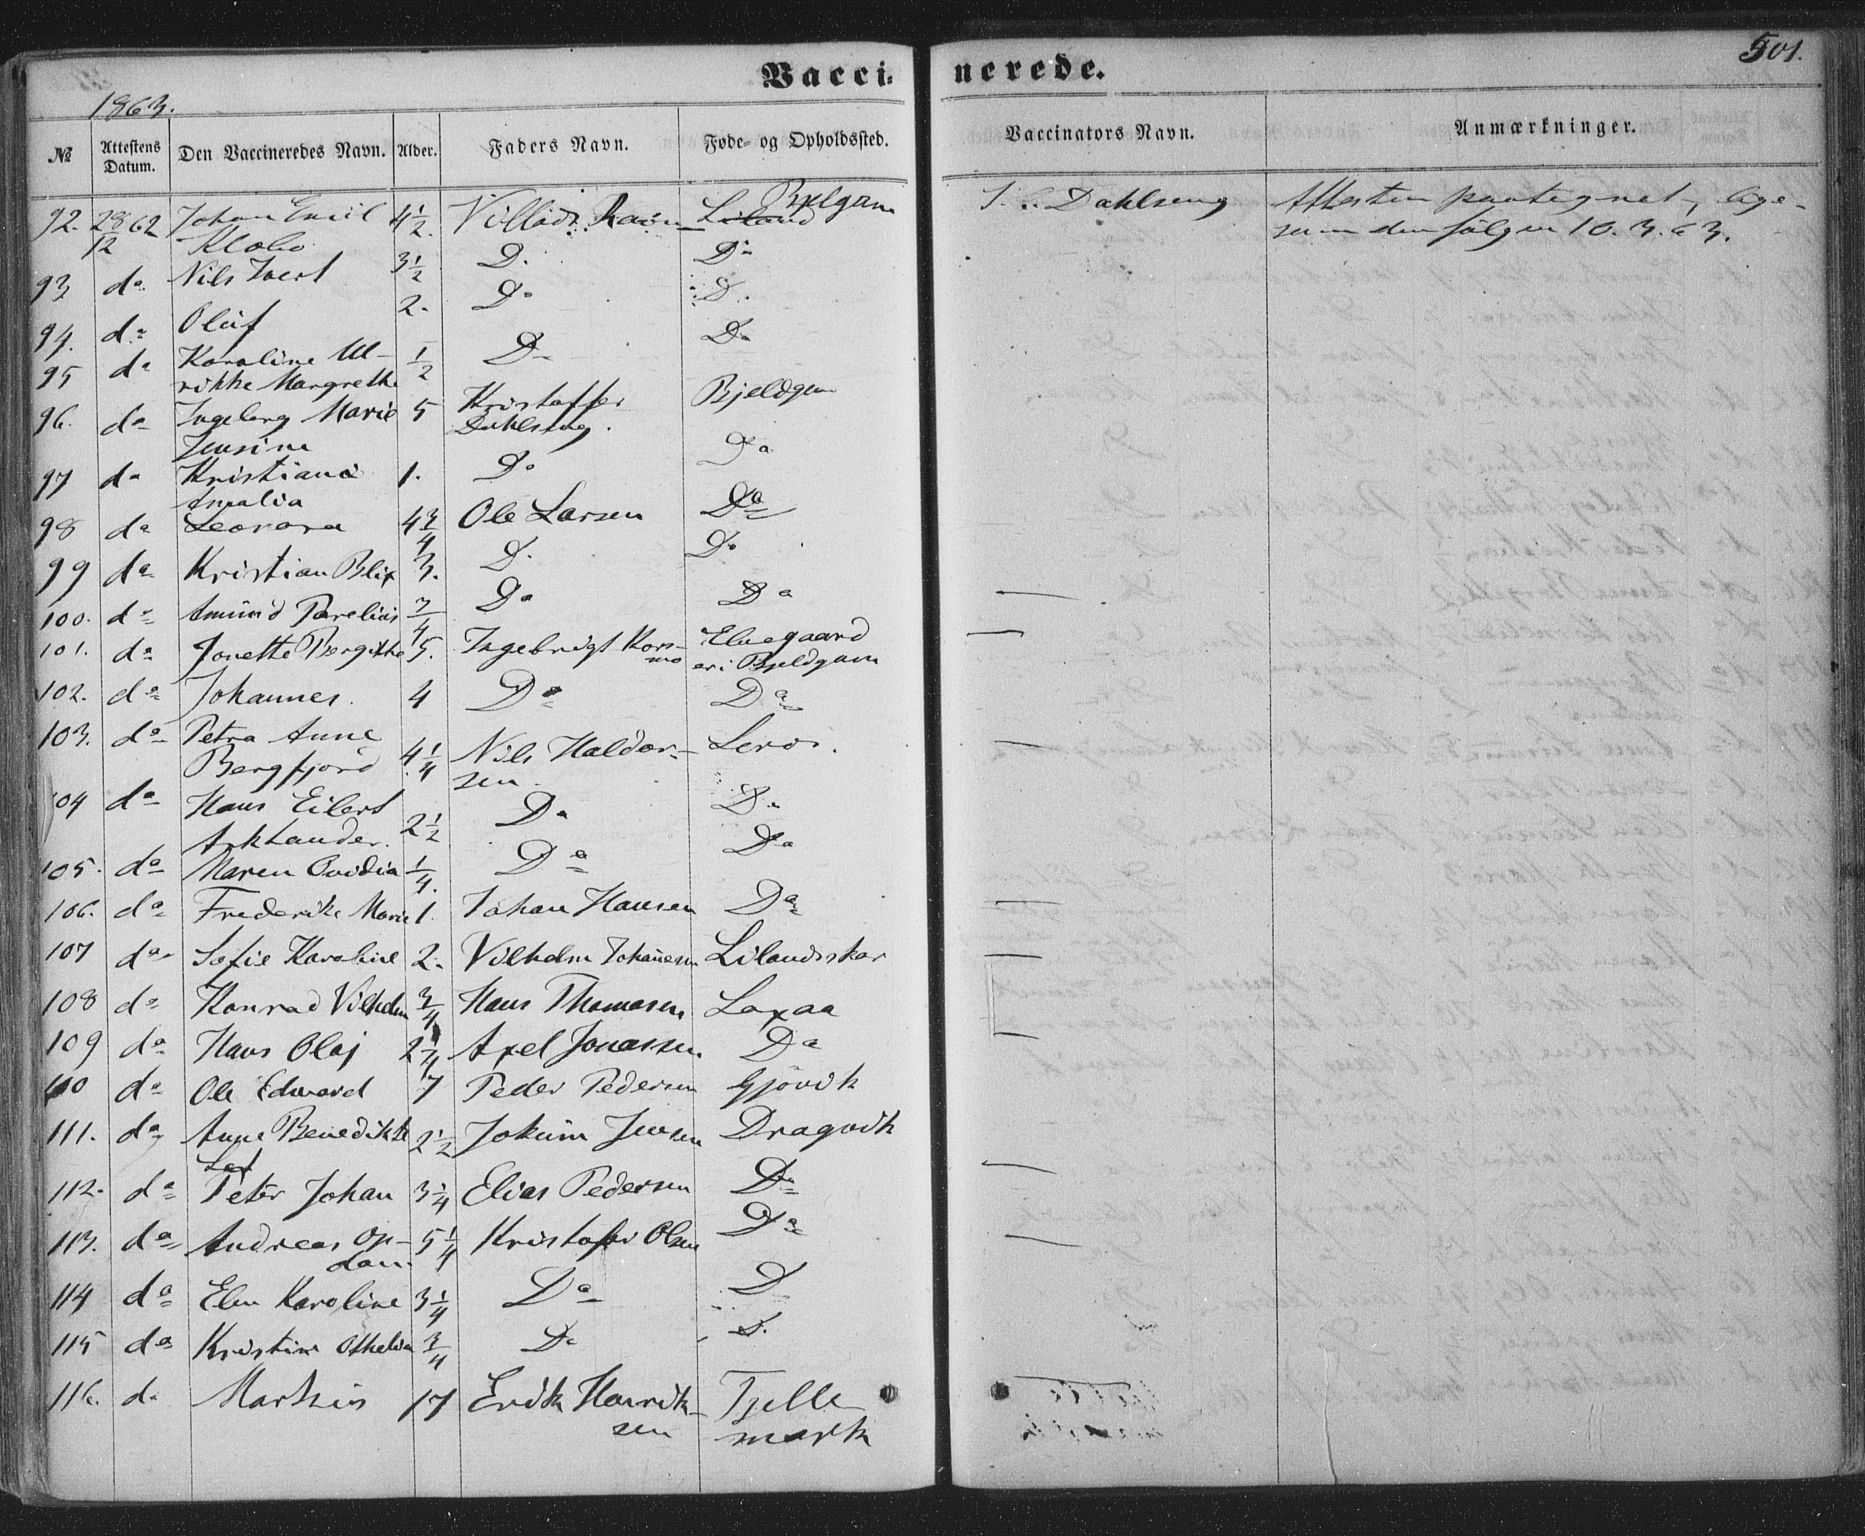 Vaccinerede.
501.
1863.
№ Attestens Datum. Den Vaccineredes Navn. Alder. Faders Navn. Føde- og Opholdssted. Vaccinators Navn. Anmærkninger.
92. 28/12 62 Johan Emil 4 1/2 Dahlseng Attesten paategnet, lige-
som den følgen 10.3.63.
93 do Nils 3 1/2 Do Do
94. do Oluf 2. Do Do
95 do Karoline Ul- 1/2 Do Do
rikke Margrethe
96. do Ingeborg Marie 5 Kristoffer Bjeldgam
Jensine Dahlseng.
97 do Kristiana 1. Do Do
Amalia
98 do Leonora 4 3/4 Ole Larsen Do
99 do Kristian Blix 3. Do Do
100. do Amund Parelius 3/4 Do Do
101. do Jonette Bergitthe 5. Ingebrigt Kors- Elvegaard
mo Bjeldgam
102. do Johannes. 4 Do Do
103. do Petra Anne
Bergfjord 4 1/4 Nils Haldor- Leros.
sen.
104 do Hans Eilert 2 1/2 Do Do
Arktander.
105. do Maren Ovidia 1/4. Do Do
106. do Frederike Marie 1. Johan Hansen Do
107 do Sofie Karoline 2. Vilhelm Johansen Lilandsskar
108 do Konrad Vilhelm 3/4 Hans Thomasen Laxaa
109 do Hans Olaj 2 1/4 Axel Jonassen Do
110 do Ole Edward 7 Peder Pedersen Gjövik
111. do Anne Benedikte 2 1/2 Jokum Jensen Dragvik
112. do Peter Johan 3 1/4 Elias Pedersen Do
113. do Andreas Op- 5 1/4 Kristofer Olsen Do
dam
114 do Elen Karoline 3 1/4 Do D
115 do Kristine Othelia 3/4 Do D.
116. do Markus 17 Erik Henrik- Tjelle
sen mark